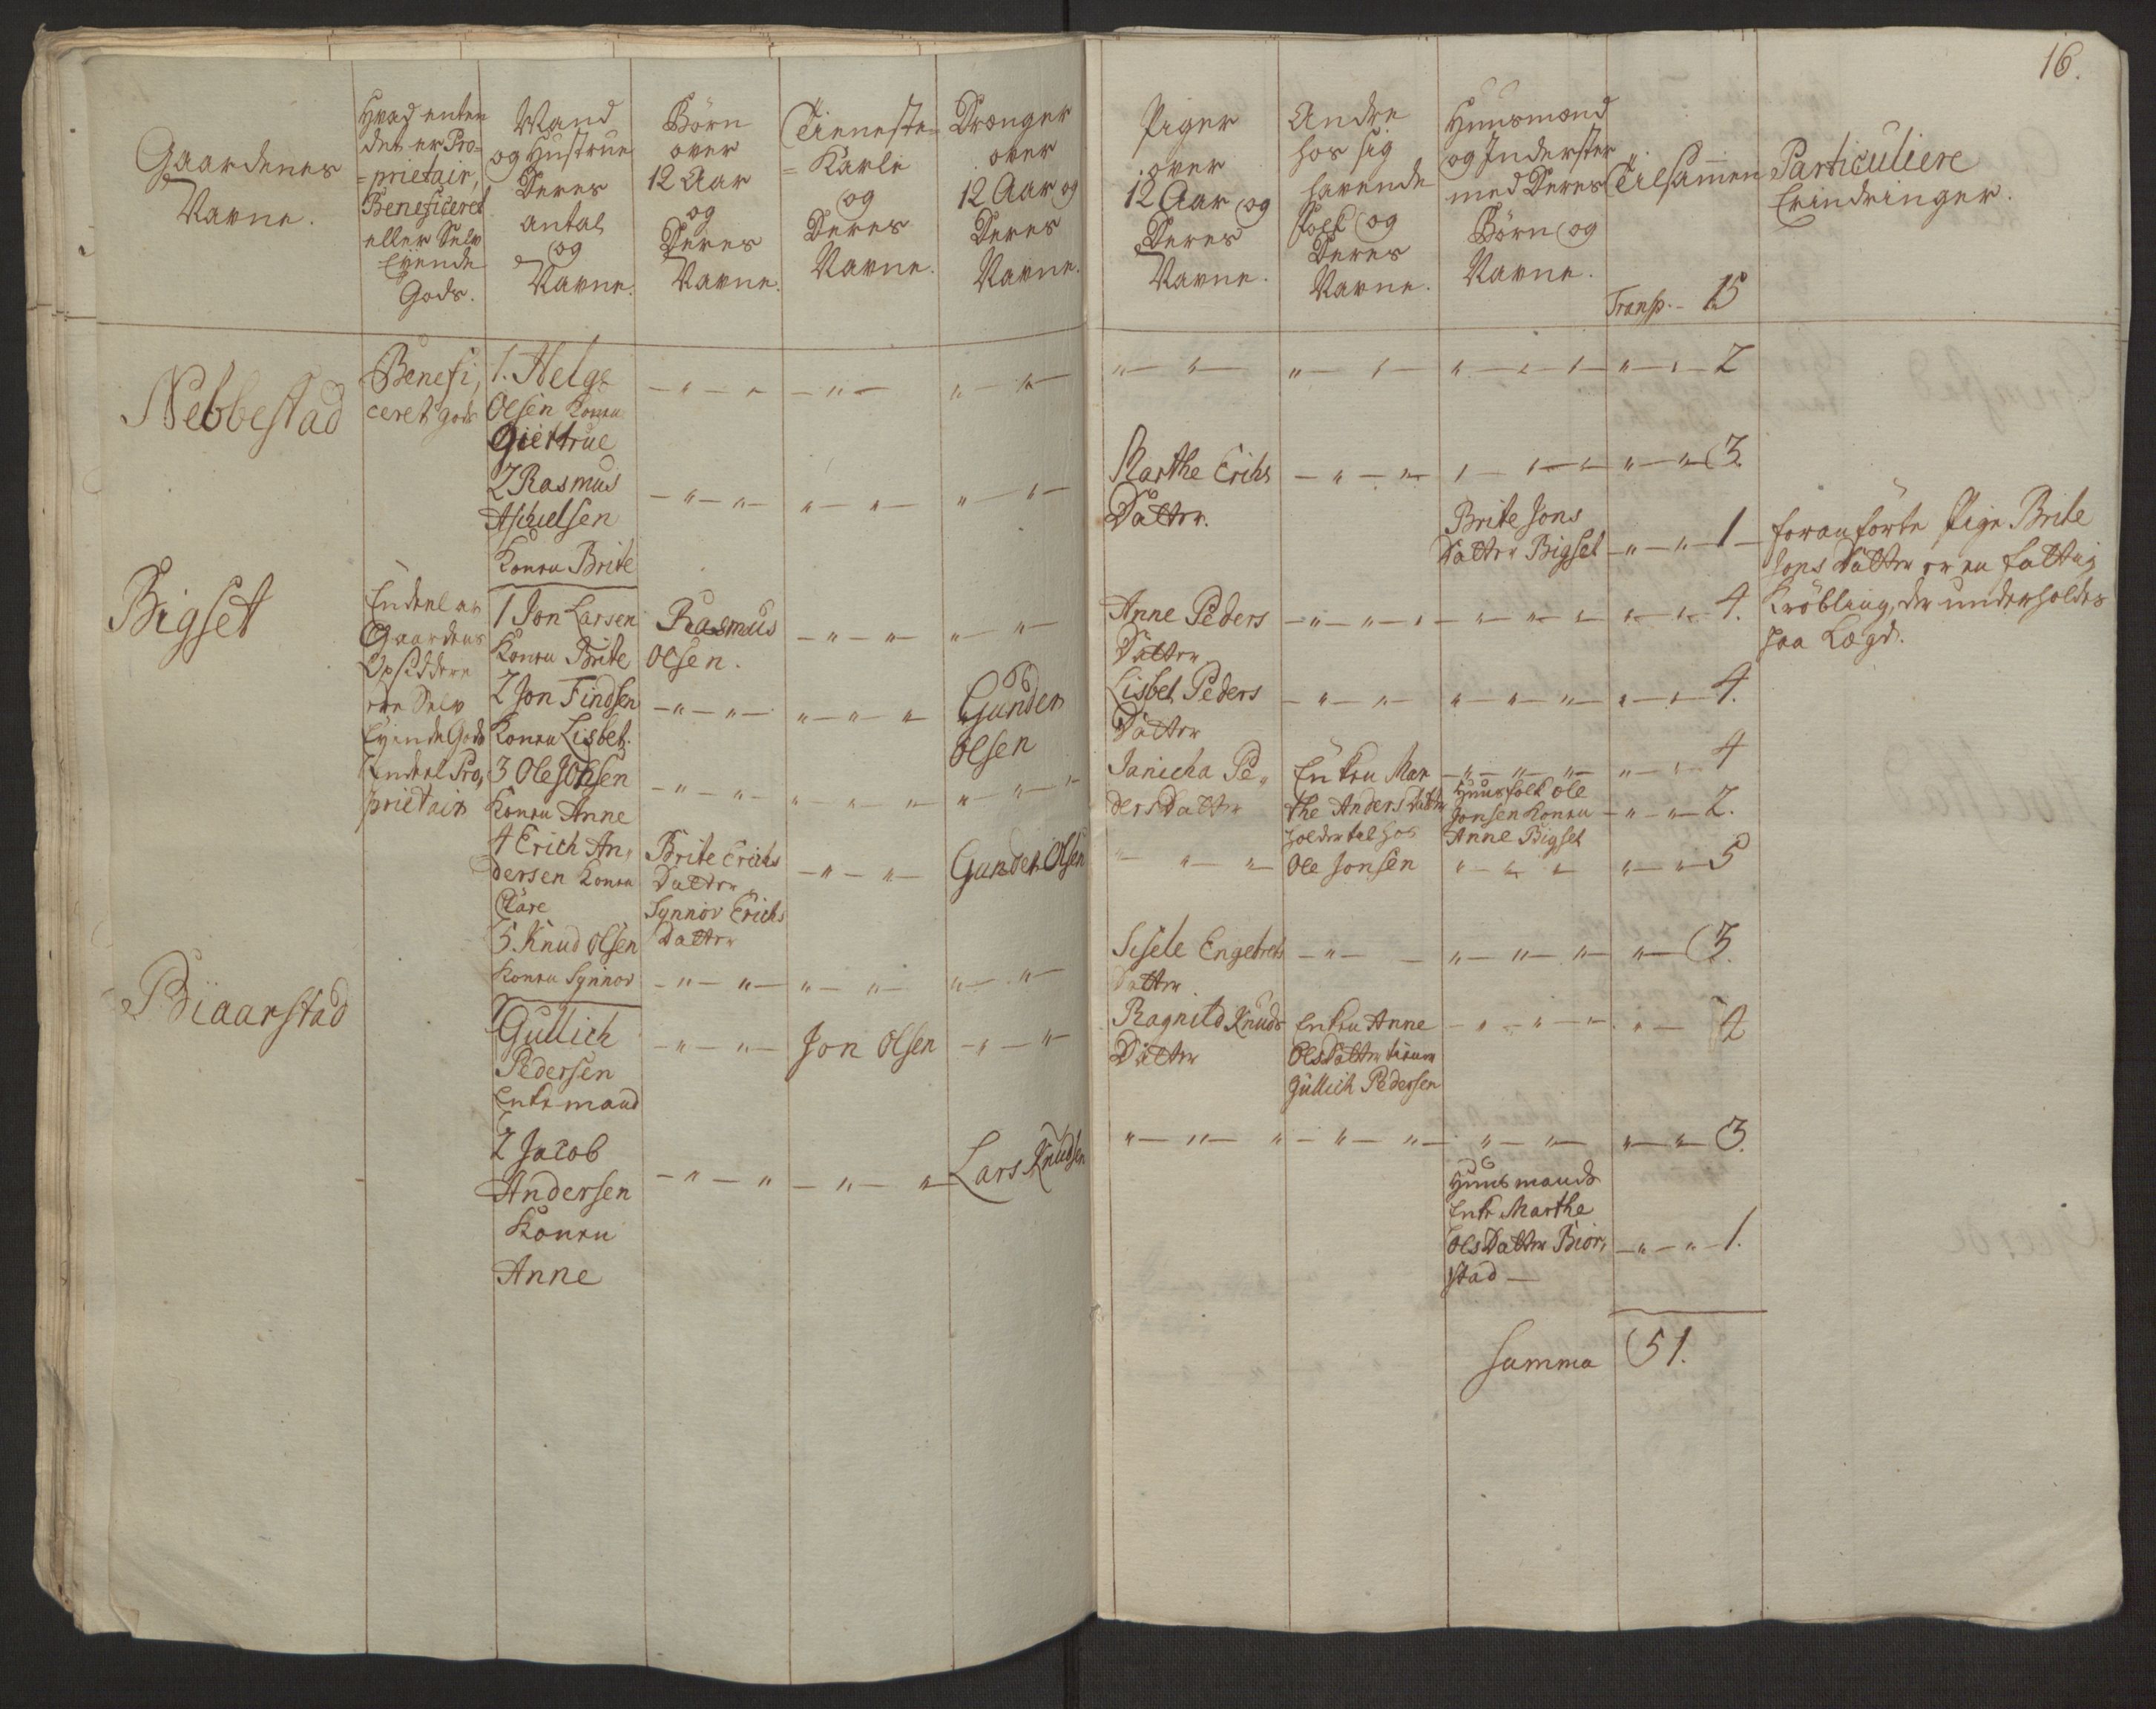 16.
Gaardenes
Navne.
Hvad enten
det er Pro-
=prietair,
Beneficeret
eller Selv
Eyende
Gods.
Mand
og Hustrue
Deres
antal
og
Navne.
Börn
over
12 Aar
og
Deres
Navne.
Tieneste-
=Karle
og
Deres
Navne.
Drenger
over
12 Aar og
Deres
Navne.
Piger
over
12 Aar og
Deres
Navne.
Andre
hos sig
havende
Folk og
Deres
Navne.
Huusmænd
og Inderster
med Deres
Börn og
Navne.
Tilsammen
Transp. - 15
Particuliere
Erindringer.
Nebbestad
Benefi,
ceret gods
1. Helge
Olsen Konen
Giertrue
2
2 Rasmus
Aschelsen
Konen Brite
Marthe Erichs
Datter.
3.
Brite Jons
Datter Bigset
1
foranförte Pige Brite
Jons Datter er en fattig
Kröbling, der underholdes
paa Lægd.
Bigset
Endeel av
Gaardens
Opsiddere
ere Selv
Eyende Gods
Endeel Pro,
prietair
1 Jon Larsen
Konen Brite
Rasmus
Olsen.
Anne Peders
Datter
4.
2 Jon Findsen
Konen Lisbet.
Gunder
Olsen
Lisbet Peders
Datter
4.
3 Ole Johsen
Konen Anne
Janicha Pe,
dersDatter
Enken Mar
the Anders Datter
holder til hos
Ole Jonsen
4
Huusfolk Ole
Jonsen Konen
Anne Bigset
2.
4 Erich An,
dersen Konen
Clare
Brite Erichs
Datter
Synnov Erichs
Datter
Gunder Olsen
5
5 Knud Olsen
Konen Synnov
Sisele Engebrets
Datter
3.
Biaarstad
1 Gullich
Pedersen
Enkemand
Jon Olsen
Ragnild Knuds
Datter
Enken Anne
OlsDatter
Gullich Pedersen
4
2 Jacob
Andersen
Konen
Anne
Lars Knudsen
3.
Huusmands
Enke Marthe
OlsDatter Bior,
stad
1.
Summa 51.